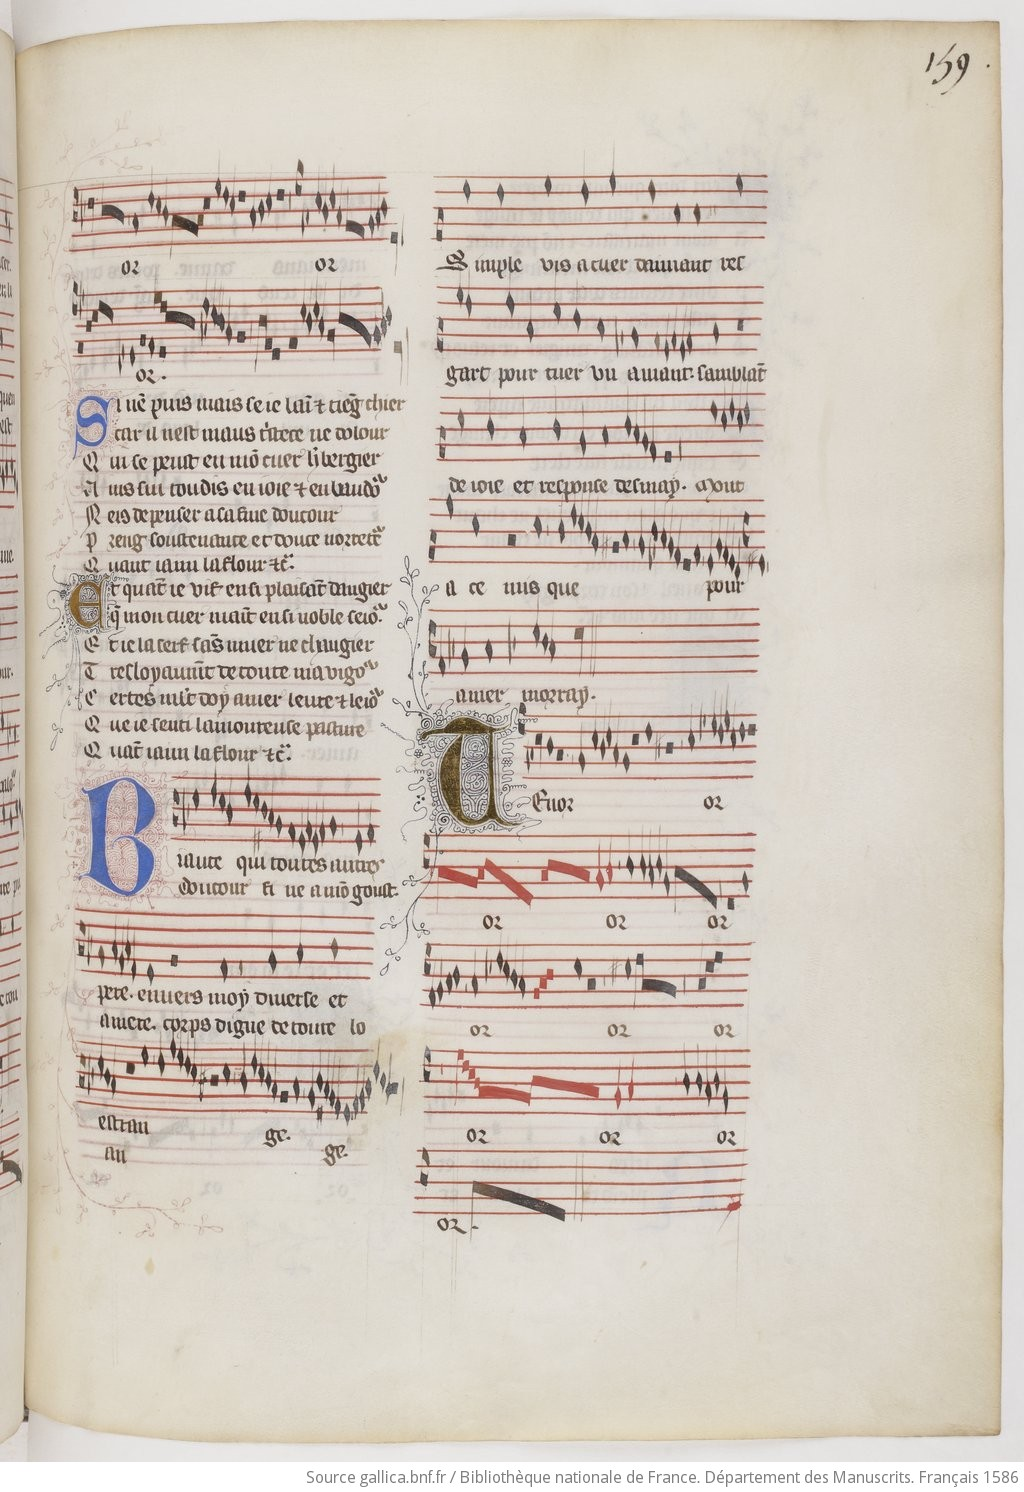 159.
or or
or.
Si nẽ puis mais se ie lai ⁊ tieg chier
car il nest maus tristece ne dolour
Qui se peust en mõ cuer h̃bergier
Ains sui toudis en ioie ⁊ en baudoʳ
Neis de penser a sa fine doucour
preng soustenance et douce norretʳ
Quant iaim la flour ⁊c̃.
Et quãt ie vif en si plaisãt dangier
q̃ mon cuer maint en si noble seioʳ.
Et ie la serf sãs muer ne changier
Tres loyaumẽt de toute ma vigoʳ
Certes mlt doy amer leure ⁊ le ioʳ
Que ie senti lamoureuse pasture
Quãt iaim la flour ⁊c̃.
Biaute qui toutes autres
doucour fi ne a mõ goust.
pere. envers moy diverse et
amere. corps digne de toute lo
estran ge.
an ge.
Simple vis a cuer daimant res
gart pour tuer un amant. samblãt
de ioie et response desmay. Mont
a ce mis que pour
amer morray.
Tenor or
or or or
or or or
or or or
or.
Source gallica.bnf.fr / Bibliothèque nationale de France. Département des Manuscrits. Français 1586